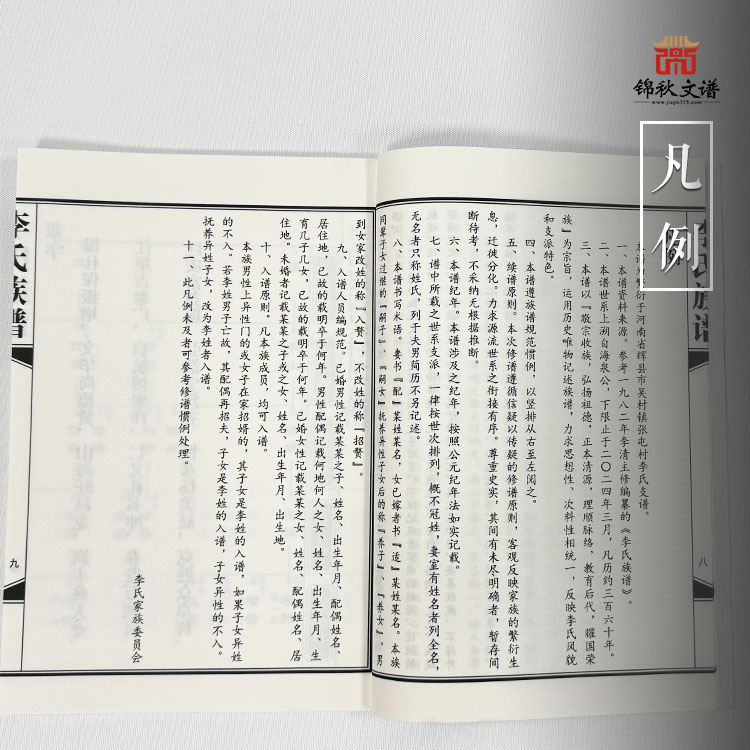 锦秋文谱
www.jiapu315.com
凡例
李氏族谱
本谱为繁衍于河南省辉县市吴村镇张屯村李氏支谱。
一、本谱资料来源。参考一九八二年李清主修编纂的《李氏族谱》。
二、本谱世系上溯自海泉公，下限止于二〇二四年三月，凡历约三百六十年。
三、本谱以『敬宗收族，弘扬祖德，正本清源，理顺脉络，教育后代，耀国荣
族』为宗旨，运用历史唯物记述族谱，力求思想性、资料性相统一，反映李氏风貌
和支派特色。
四、本谱遵族谱规范惯例，以竖排从右至左阅之。
五、续谱原则。本次修谱遵循信疑以传疑的修谱原则，客观反映家族的繁衍生
息，迁徙分化。力求源流世系之衔接有序。尊重史实，其间有未尽明确者，暂存间
断待考，不采纳无根据推断。
六、本谱纪年。本谱涉及之纪年，按照公元纪年法如实记载。
七、谱中所载之世系支派，一律按世次排列，概不冠姓，妻室有姓名者列全名，
无名者只称姓氏，列于夫男简历不另记述。
八、本谱书写术语。妻书『配』某姓某名，女已嫁者书『适』某姓某名。本族
同辈子女过继的『嗣子』、『嗣女』抚养异性子女后的称『养子』、『养女』，男
八
李氏族谱
到女家改姓的称『入赘』，不改姓的称『招赘』。
九、入谱人员编规范。已婚男性记载某某之子、姓名、出生年月、配偶姓名、
居住地，已故的载明卒于何年。男性配偶记载何地何人之女、姓名、出生年月、生
育几子几女，已故的载明卒于何年。已婚女性记载某某之女、姓名、配偶姓名、居
住地。未婚者记载某某之子或之女、姓名、出生年月、出生地。
十、入谱原则。凡本族成员，均可入谱。
本族男性上异性门的或女子在家招婿的，其子女是李姓的入谱，如果子女异姓
的不入。若李姓男子亡故，其配偶再招夫，子女是李姓的入谱，子女异性的不入。
抚养异姓子女，改为李姓者入谱。
十一、此凡例未及者可参考修谱惯例处理。
李氏家族委员会
九